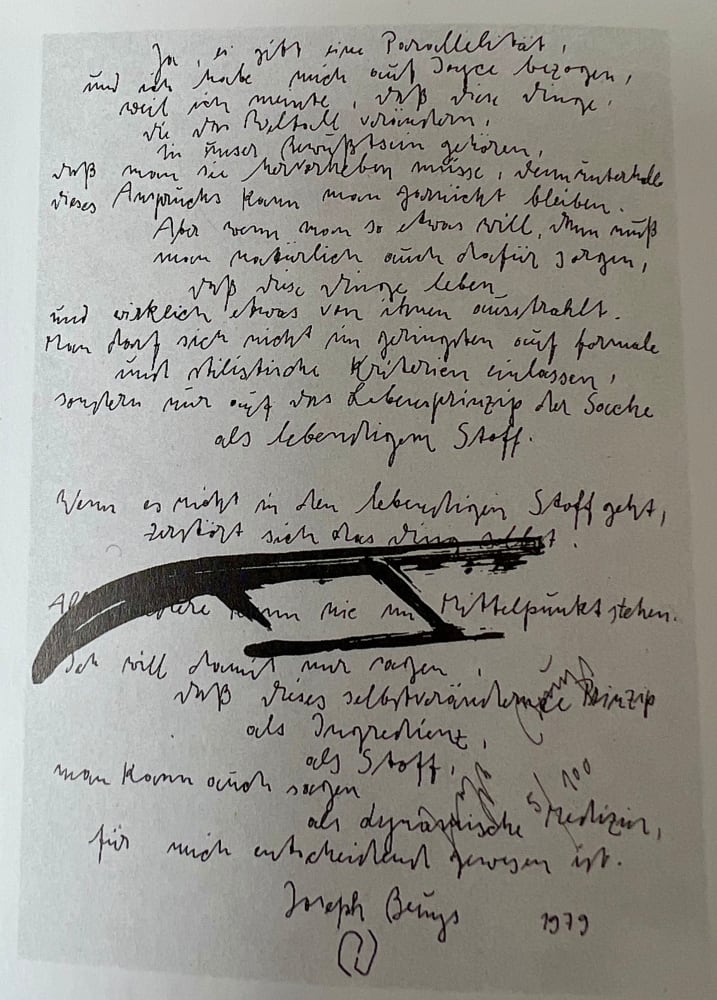 Ja, es gibt eine Parallelität,
und ich habe mich auf Joyce bezogen,
weil ich meinte, daß diese Dinge,
die das Weltall verändern,
in unser Bewußtsein gehören,
daß man sie hervorheben müsse, denn unterhalb
dieses Anspruchs kann man garnicht bleiben.
Aber wenn man so etwas will, dann muß
man natürlich auch dafür sorgen,
daß diese Dinge leben
und wirklich etwas von ihnen ausstrahlt.
Man darf sich nicht im geringsten auf formale
und stilistische Kriterien einlassen,
sondern nur auf das Lebensprinzip der Sache
als lebendigem Stoff.
Wenn es nicht in den lebendigen Stoff geht,
zerstört sich das Ding selbst.
kann nie im Mittelpunkt stehen.
Ich will damit nur sagen,
daß dieses selbstverändernde Prinzip
als Ingredienz,
als Stoff,
man kann auch sagen
5/100
als dynamische Medizin,
für mich entscheidend gewesen ist.
Joseph Beuys 1979